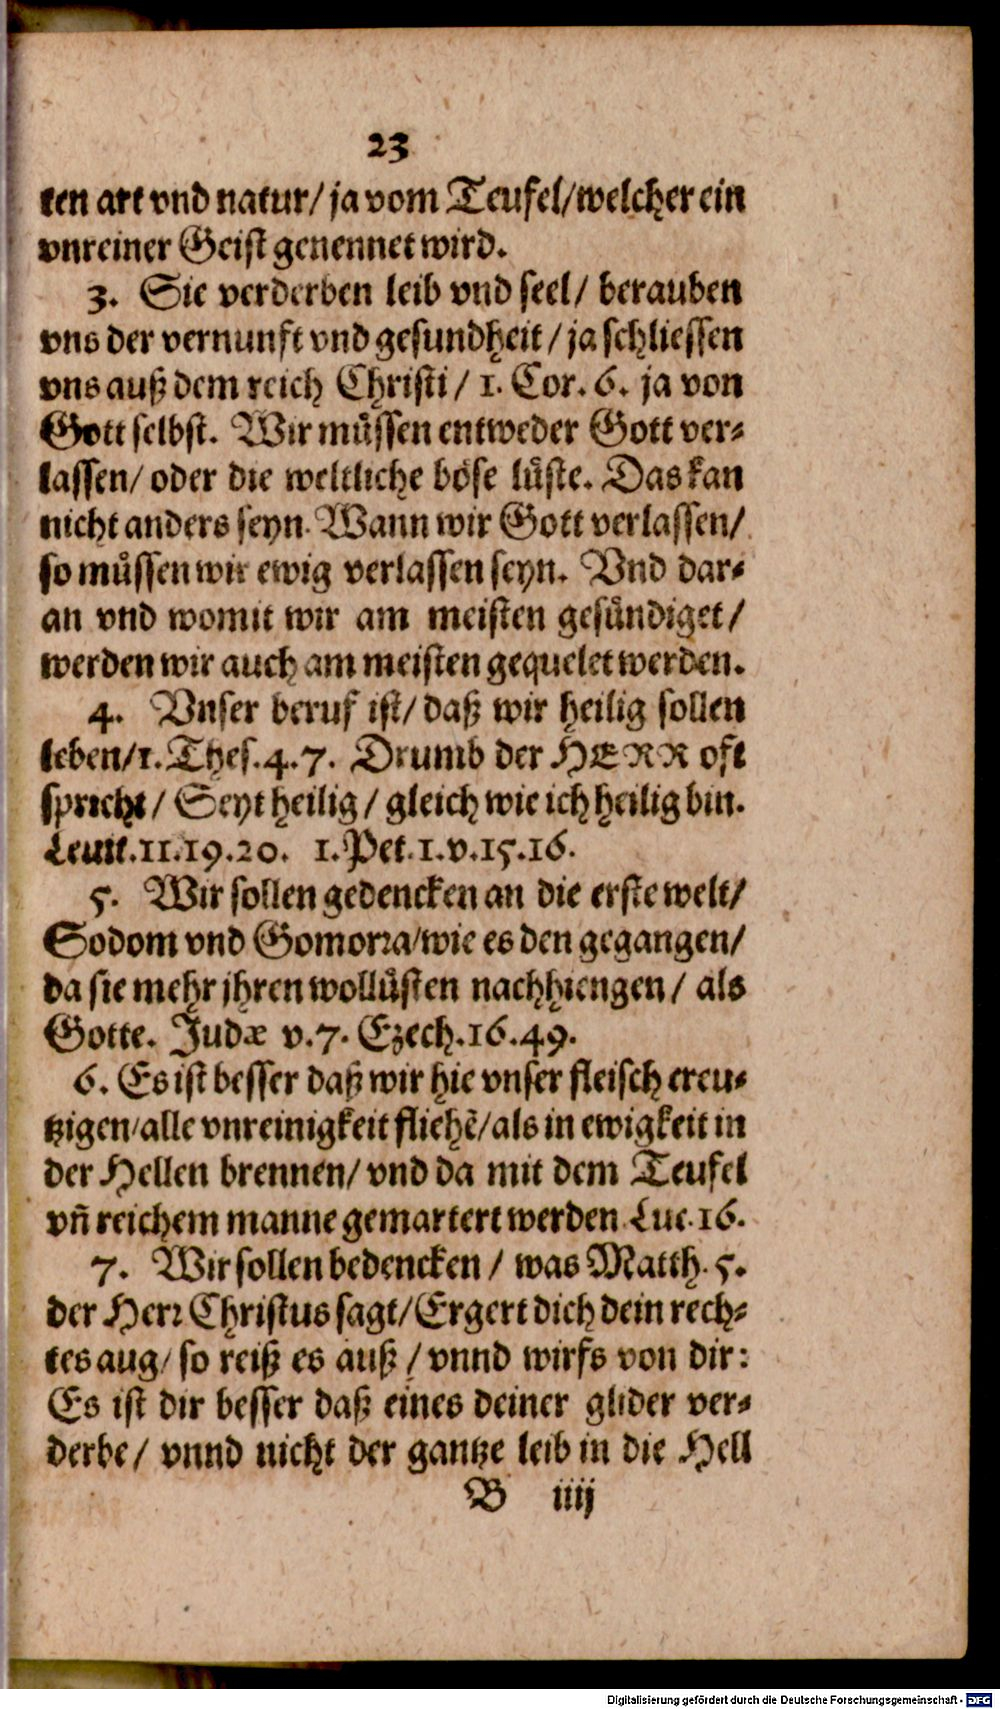 23
ten art vnd natur/ ja vom Teufel/ welcher ein
vnreiner Geist genennet wird.
3. Sie verderben leib vnd seel/ berauben
vns der vernunft vnd gesundheit/ ja schliessen
vns auß dem reich Christi/ 1. Cor. 6. ja von
Gott selbst. Wir muͤssen entweder Gott ver-
lassen/ oder die weltliche boͤse luͤste. Das kan
nicht anders seyn. Wann wir Gott verlassen/
so muͤssen wir ewig verlassen seyn. Vnd dar-
an vnd womit wir am meisten gesuͤndiget/
werden wir auch am meisten gequelet werden.
4. Vnser beruf ist/ daß wir heilig sollen
leben/ 1. Thes. 4. 7. Drumb der HERR oft
spricht/ Seyt heilig/ gleich wie ich heilig bin.
Levit. 11. 19. 20. 1. Pet. 1. v. 15. 16.
5. Wir sollen gedencken an die erste welt/
Sodom vnd Gomorra/ wie es den gegangen/
da sie mehr jhren wolluͤsten nachhiengen/ als
Gotte. Judæ v. 7. Ezech. 16. 49.
6. Es ist besser daß wir hie vnser fleisch creu-
tzigen/ alle vnreinigkeit fliehẽ/ als in ewigkeit in
der Hellen brennen/ vnd da mit dem Teufel
vñ reichem manne gemartert werden. Luc. 16.
7. Wir sollen bedencken/ was Matth. 5.
der Herr Christus sagt/ Ergert dich dein rech-
tes aug/ so reiß es auß/ vnnd wirfs von dir:
Es ist dir besser daß eines deiner glider ver-
derbe/ vnnd nicht der gantze leib in die Hell
B iiij
Digitalisierung gefördert durch die Deutsche Forschungsgemeinschaft - DFG